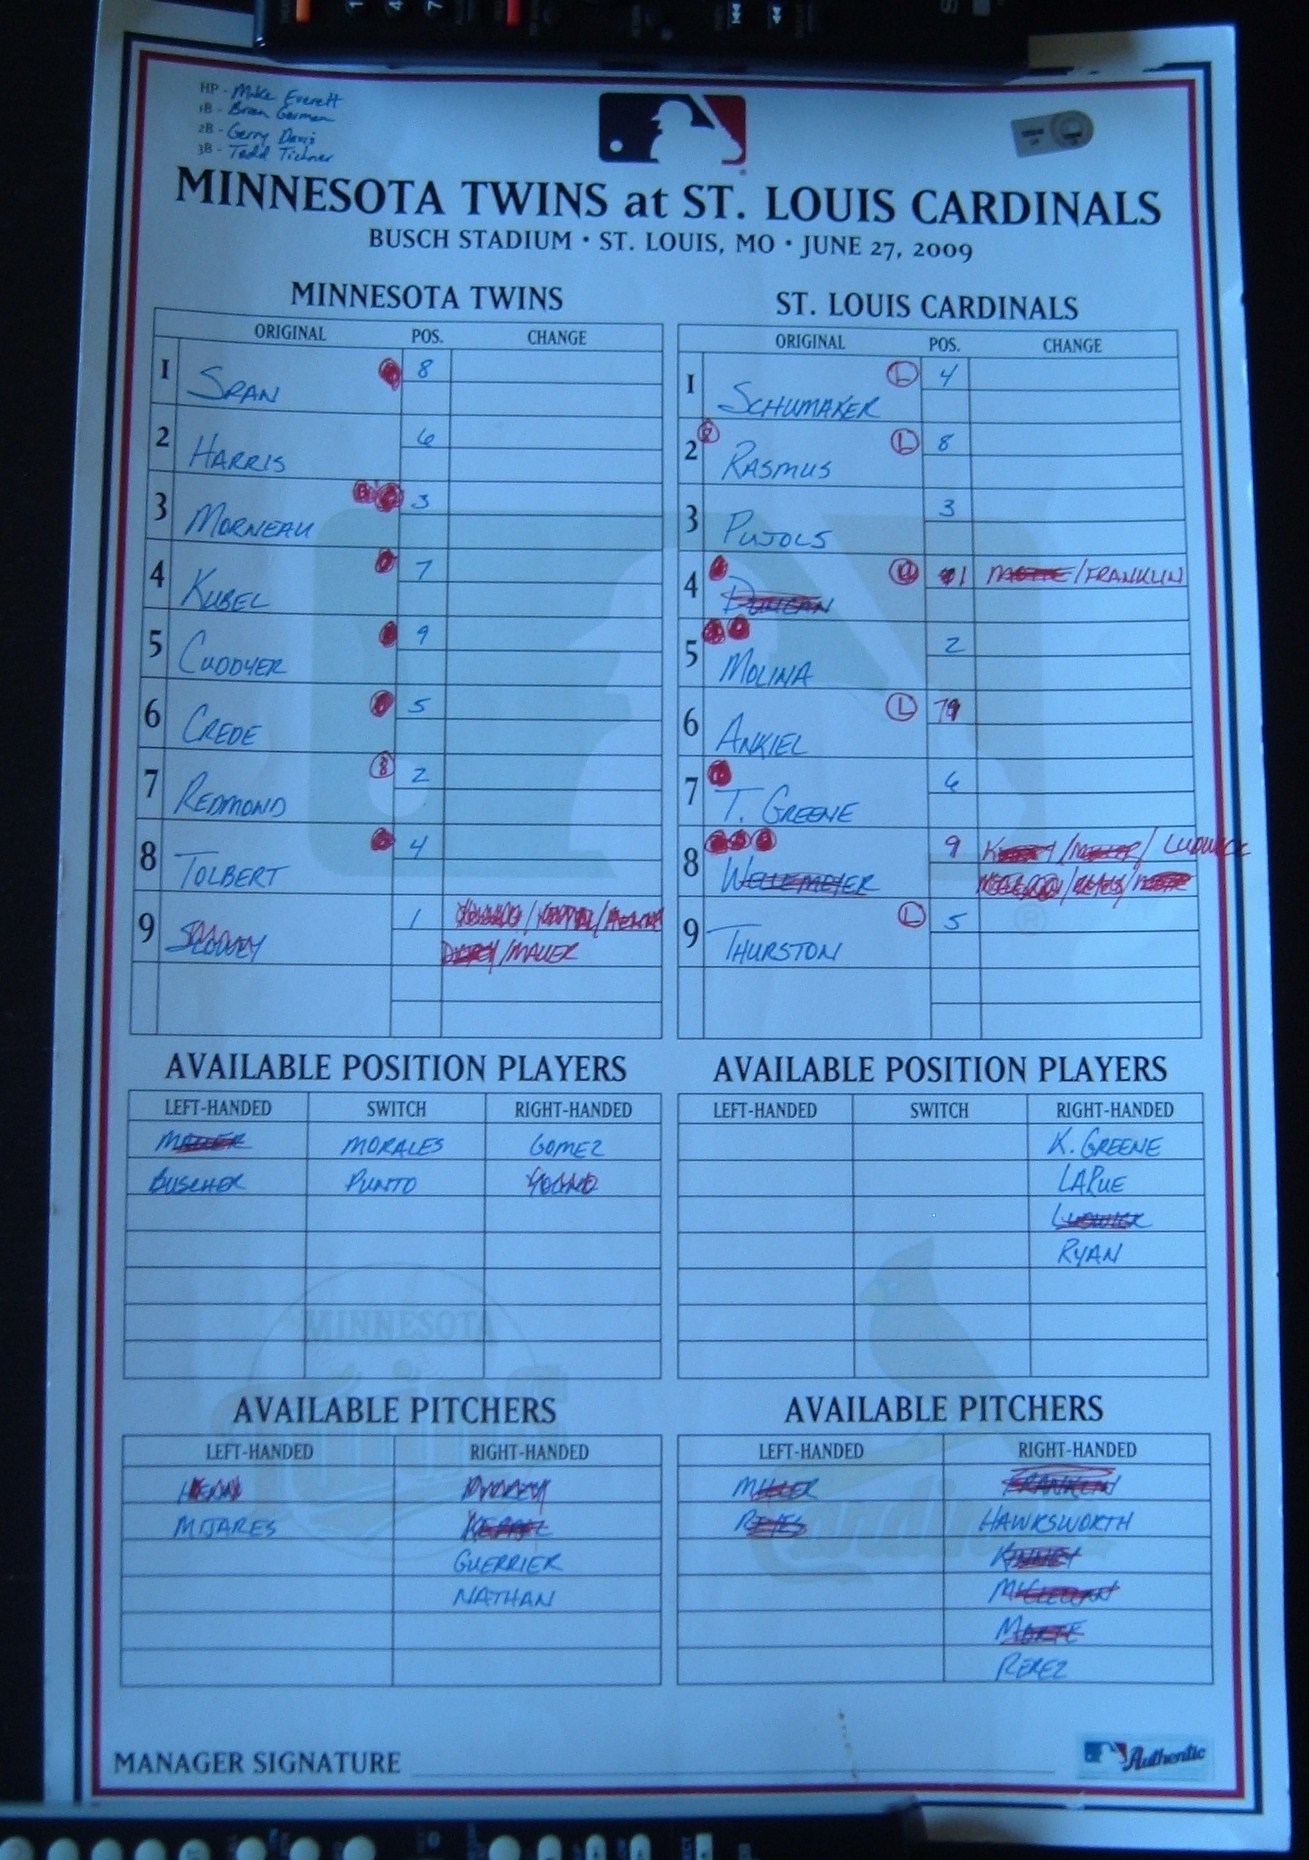 HP - Mike Everett
1B - Brian Gorman
2B - Gerry Davis
3B - Todd Tichenor
MINNESOTA TWINS at ST. LOUIS CARDINALS
BUSCH STADIUM · ST. LOUIS, MO · JUNE 27, 2009
MINNESOTA TWINS
ORIGINAL POS. CHANGE
1 SPAN 8
2 HARRIS 6
3 MORNEAU 3
4 KUBEL 7
5 CUDDYER 9
6 CREDE 5
7 REDMOND 2
8 TOLBERT 4
9 1
/MAUER
ST. LOUIS CARDINALS
ORIGINAL POS. CHANGE
1 SCHUMAKER L 4
2 RASMUS L 8
3 PUJOLS 3
4 DUNCAN 1 /FRANKLIN
5 MOLINA 2
6 ANKIEL L 9
7 T. GREENE 6
8 WELLEMEYER 9 / LUDWICK
9 THURSTON L 5
AVAILABLE POSITION PLAYERS
LEFT-HANDED SWITCH RIGHT-HANDED
MAUER MORALES GOMEZ
BUSCHER PUNTO YOUNG
AVAILABLE POSITION PLAYERS
LEFT-HANDED SWITCH RIGHT-HANDED
K. GREENE
LARUE
LUDWICK
RYAN
MINNESOTA
Twins
AVAILABLE PITCHERS
LEFT-HANDED RIGHT-HANDED
HENN DICKEY
MIJARES KEPPEL
GUERRIER
NATHAN
AVAILABLE PITCHERS
LEFT-HANDED RIGHT-HANDED
MILLER FRANKLIN
REYES HAWKSWORTH
KINNEY
MCCLELLAN
MOTTE
PEREZ
Cardinals
MANAGER SIGNATURE
Authentic